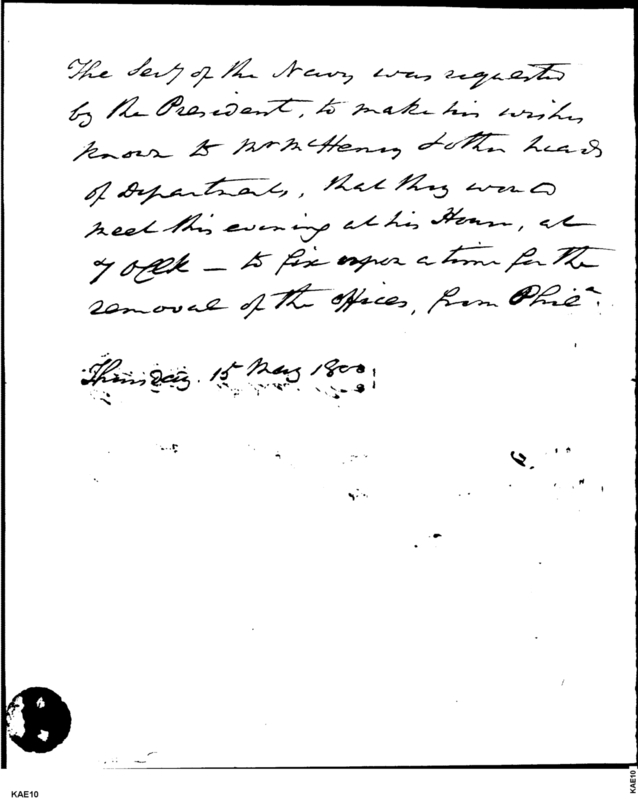 The Secy of the Navy was requested
by the President, to make his wishes
known to Mr McHenry & other heads
of Departments, that they would
meet this evening at his House, at
7 oClk — to fix upon a time for the
removal of the offices, from Phila.
Thursday. 15 May 1800
KAE10
KAE10